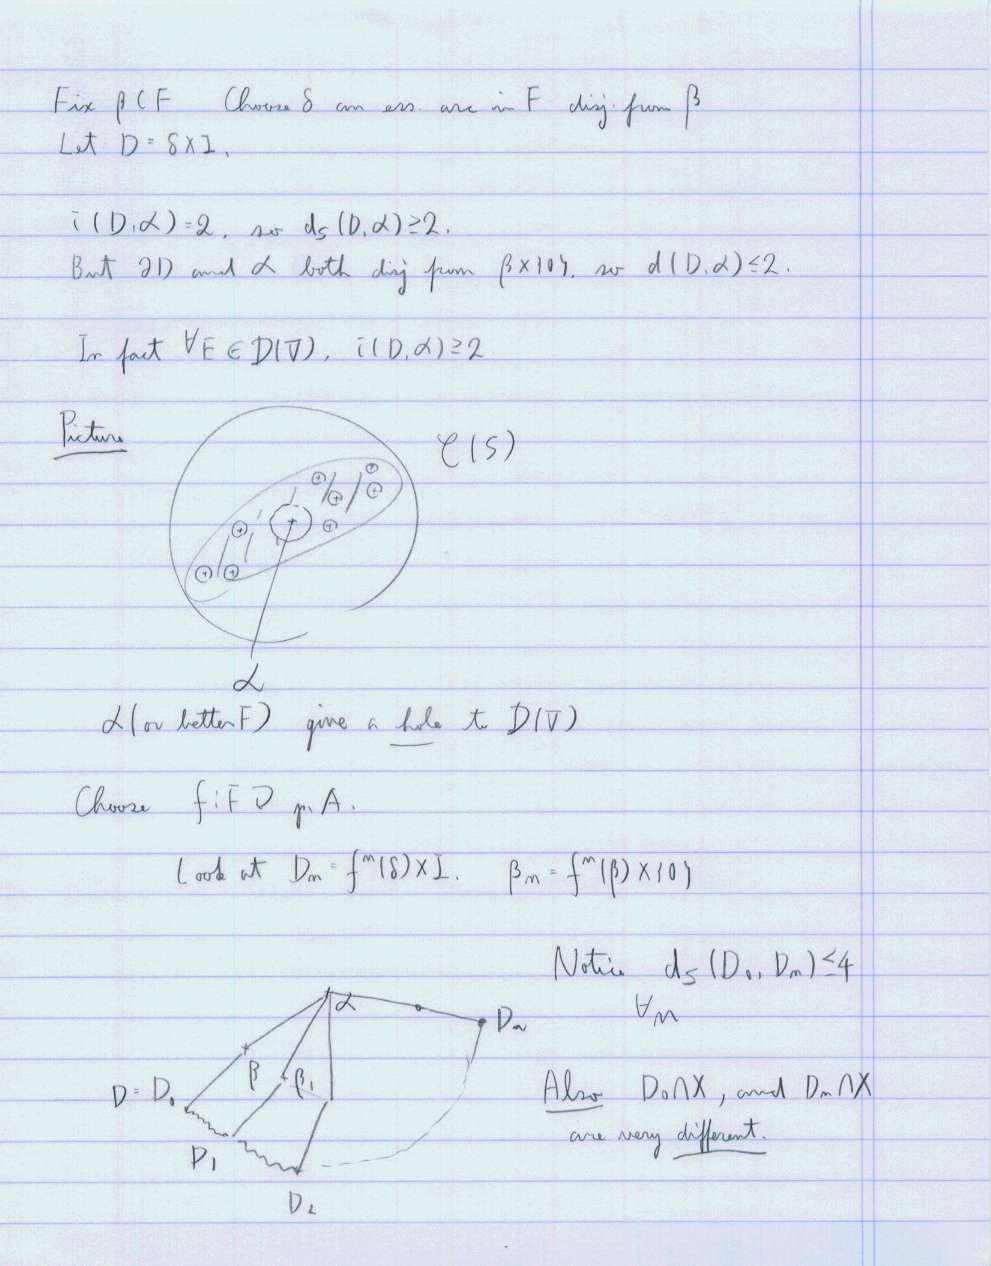 Fix β ⊂ F Choose δ an ess. arc in F disj. from β
Let D = δ×I.
i(D,α)=2, so d_S(D,α)≥2.
But ∂D and α both disj from β×{0}, so d(D,α)≤2.
In fact ∀E ∈ D(V), i(D,α)≥2
Picture
C(S)
α
α (or better F) give a hole to D(V)
Choose f: F ⊃ p.A.
Look at Dₙ = fⁿ(δ)×I. βₙ = fⁿ(β)×{0}
Notice d_S(D₀, Dₙ)≤4
∀n
α
Dₙ
β
β₁
D = D₀
D₁
D₂
Also D₀∩X, and Dₙ∩X
are very different.